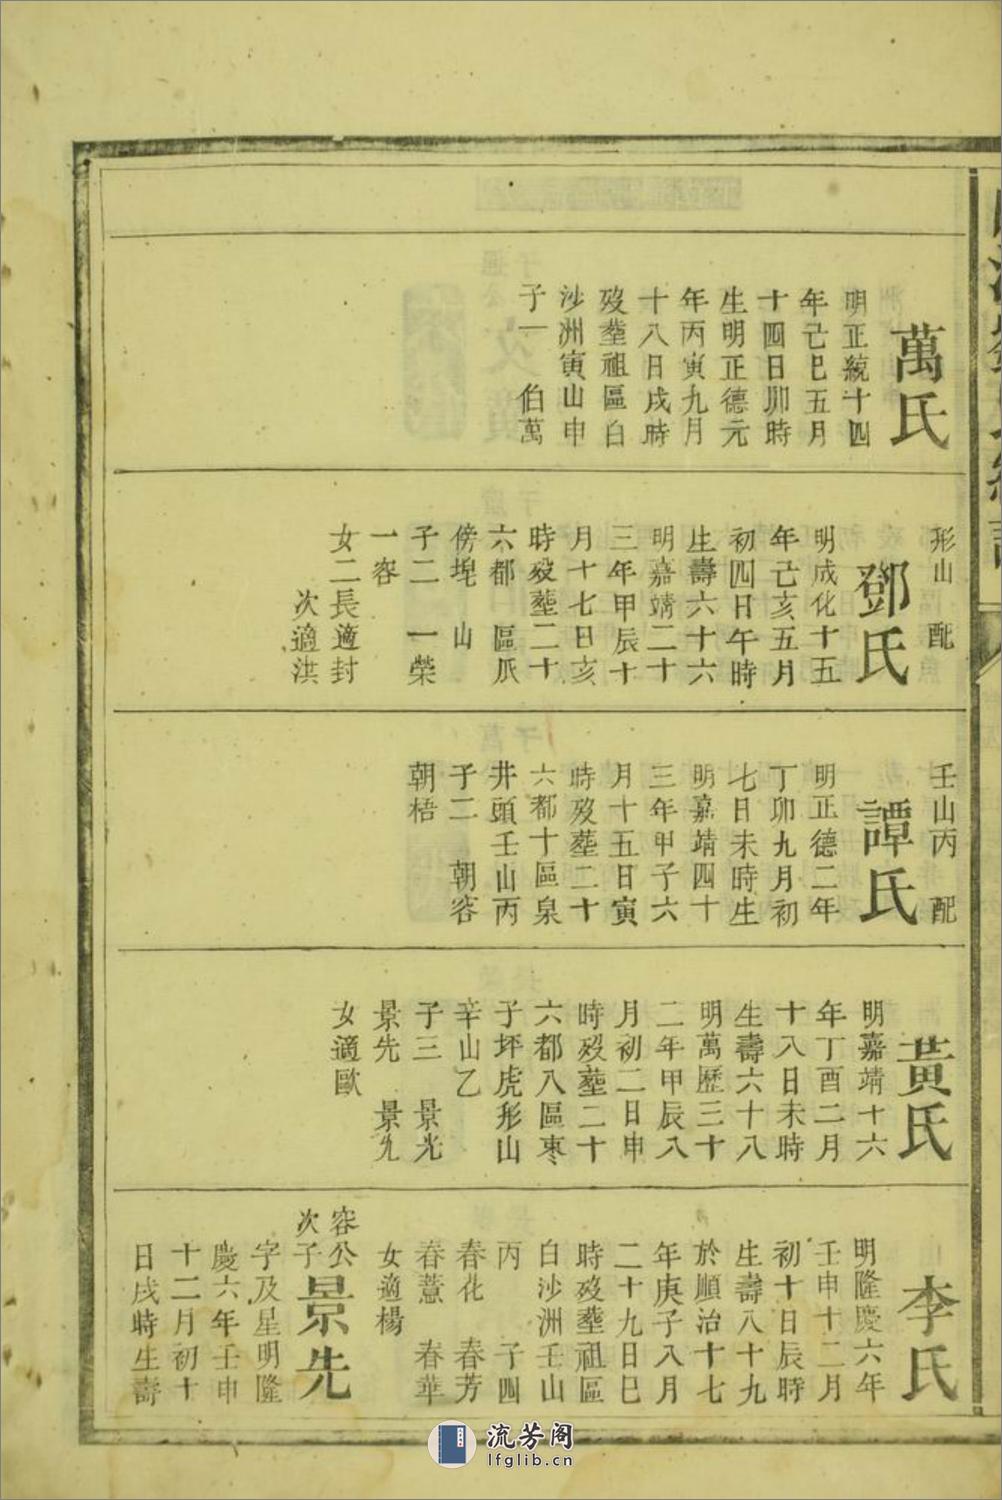 萬氏
明正統十四
年己巳五月
十四日卯時
生明正德元
年丙寅九月
十八日戌時
歿塟祖區白
沙洲寅山申
子一 伯萬
形山 配
鄧氏
明成化十五
年己亥五月
初四日午時
生壽六十六
明嘉靖二十
三年甲辰十
月十七日亥
時歿塟二十
六都 區爪
傍堄 山
子二 一榮
一容
女二長適封
次適洪
壬山丙 配
譚氏
明正德二年
丁卯九月初
七日未時生
明嘉靖四十
三年甲子六
月十五日寅
時歿塟二十
六都十區泉
井頭壬山丙
子二 朝容
朝梧
黃氏
明嘉靖十六
年丁酉二月
十八日未時
生壽六十八
明萬歷三十
二年甲辰八
月初二日申
時歿塟二十
六都八區棗
子坪虎形山
辛山乙
子三 景光
景先 景允
女適歐
李氏
明隆慶六年
壬申十二月
初十日辰時
生壽八十九
於順治十七
年庚子八月
二十九日巳
時歿塟祖區
白沙洲壬山
丙 子四
春化 春芳
春薏 春華
女適楊
容公
次子
景先
字及星明隆
慶六年壬申
十二月初十
日戌時生壽
流芳阁
lfglib.cn